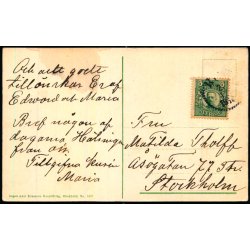 Allt gott
tillönskar Eder af
Edward och Maria
Bref någon af
dagarna Hälsingar
från oss
Tillgifna kusin
Maria
Fru
Matilda Tholff
Åsögatan 77 3 tr.
Stockholm